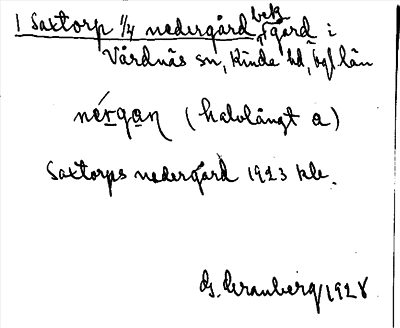 1 Saxtorp 1/4 nedergård bek fgård i
Vårdnäs sn, Kinda hd, Ögl län
nérgan (halvlångt a)
Saxtorps nedergård 1923 kle.
G. Granberg 1928